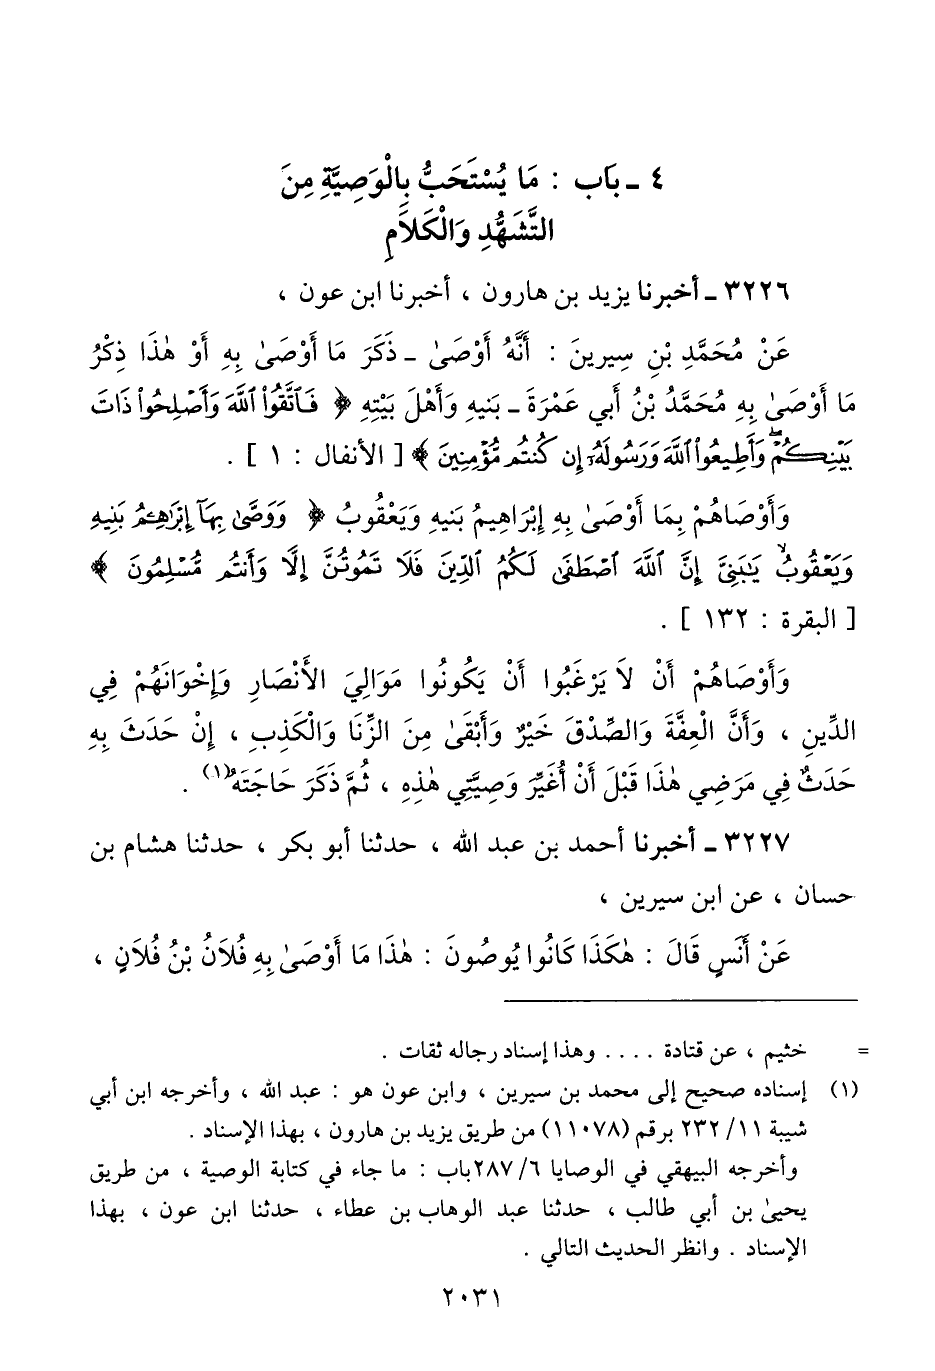 ٤ ـ بَاب : مَا يُسْتَحَبُّ بِالْوَصِيَّةِ مِنَ
التَّشَهُّدِ وَالْكَلاَمِ
٣٢٢٦ ـ أخبرنا يزيد بن هارون ، أخبرنا ابن عون ،
عَنْ مُحَمَّدِ بْنِ سِيرِينَ : أَنَّهُ أَوْصَىٰ ـ ذَكَرَ مَا أَوْصَىٰ بِهِ أَوْ هٰذَا ذِكْرُ
مَا أَوْصَىٰ بِهِ مُحَمَّدُ بْنُ أَبي عَمْرَةَ ـ بَنيهِ وَأَهْلَ بَيْتِهِ ﴿ فَٱتَّقُوا۟ ٱللَّهَ وَأَصْلِحُوا۟ ذَاتَ
بَيْنِكُمْ ۖ وَأَطِيعُوا۟ ٱللَّهَ وَرَسُولَهُۥٓ إِن كُنتُم مُّؤْمِنِينَ ﴾ [ الأنفال : ١ ] .
وَأَوْصَاهُمْ بِمَا أَوْصَىٰ بِهِ إِبْرَاهِيمُ بَنيهِ وَيَعْقُوبُ ﴿ وَوَصَّىٰ بِهَآ إِبْرَٰهِـۧمُ بَنِيهِ
وَيَعْقُوبُ ۙ يَٰبَنِىَّ إِنَّ ٱللَّهَ ٱصْطَفَىٰ لَكُمُ ٱلدِّينَ فَلَا تَمُوتُنَّ إِلَّا وَأَنتُم مُّسْلِمُونَ ﴾
[ البقرة : ١٣٢ ] .
وَأَوْصَاهُمْ أَنْ لاَ يَرْغَبُوا أَنْ يَكُونُوا مَوَالِيَ الأَنْصَارِ وَإِخْوَانَهُمْ فِي
الدِّينِ ، وَأَنَّ الْعِفَّةَ وَالصِّدْقَ خَيْرٌ وَأَبْقَىٰ مِنَ الزِّنَا وَالْكَذِبِ ، إِنْ حَدَثَ بِهِ
حَدَثٌ فِي مَرَضِي هٰذَا قَبْلَ أَنْ أُغَيِّرَ وَصِيَّتِي هٰذِهِ ، ثُمَّ ذَكَرَ حَاجَتَهُ(١) .
٣٢٢٧ ـ أخبرنا أحمد بن عبد الله ، حدثنا أبو بكر ، حدثنا هشام بن
حسان ، عن ابن سيرين ،
عَنْ أَنَسٍ قَالَ : هٰكَذَا كَانُوا يُوصُونَ : هٰذَا مَا أَوْصَىٰ بِهِ فُلاَنُ بْنُ فُلاَنٍ ،
= خثيم ، عن قتادة .... وهذا إسناد رجاله ثقات .
(١) إسناده صحيح إلى محمد بن سيرين ، وابن عون هو : عبد الله ، وأخرجه ابن أبي
شيبة ١١/ ٢٣٢ برقم (١١٠٧٨) من طريق يزيد بن هارون ، بهذا الإسناد .
وأخرجه البيهقي في الوصايا ٦/ ٢٨٧باب : ما جاء في كتابة الوصية ، من طريق
يحيىٰ بن أبي طالب ، حدثنا عبد الوهاب بن عطاء ، حدثنا ابن عون ، بهذا
الإسناد . وانظر الحديث التالي .
٢٠٣١